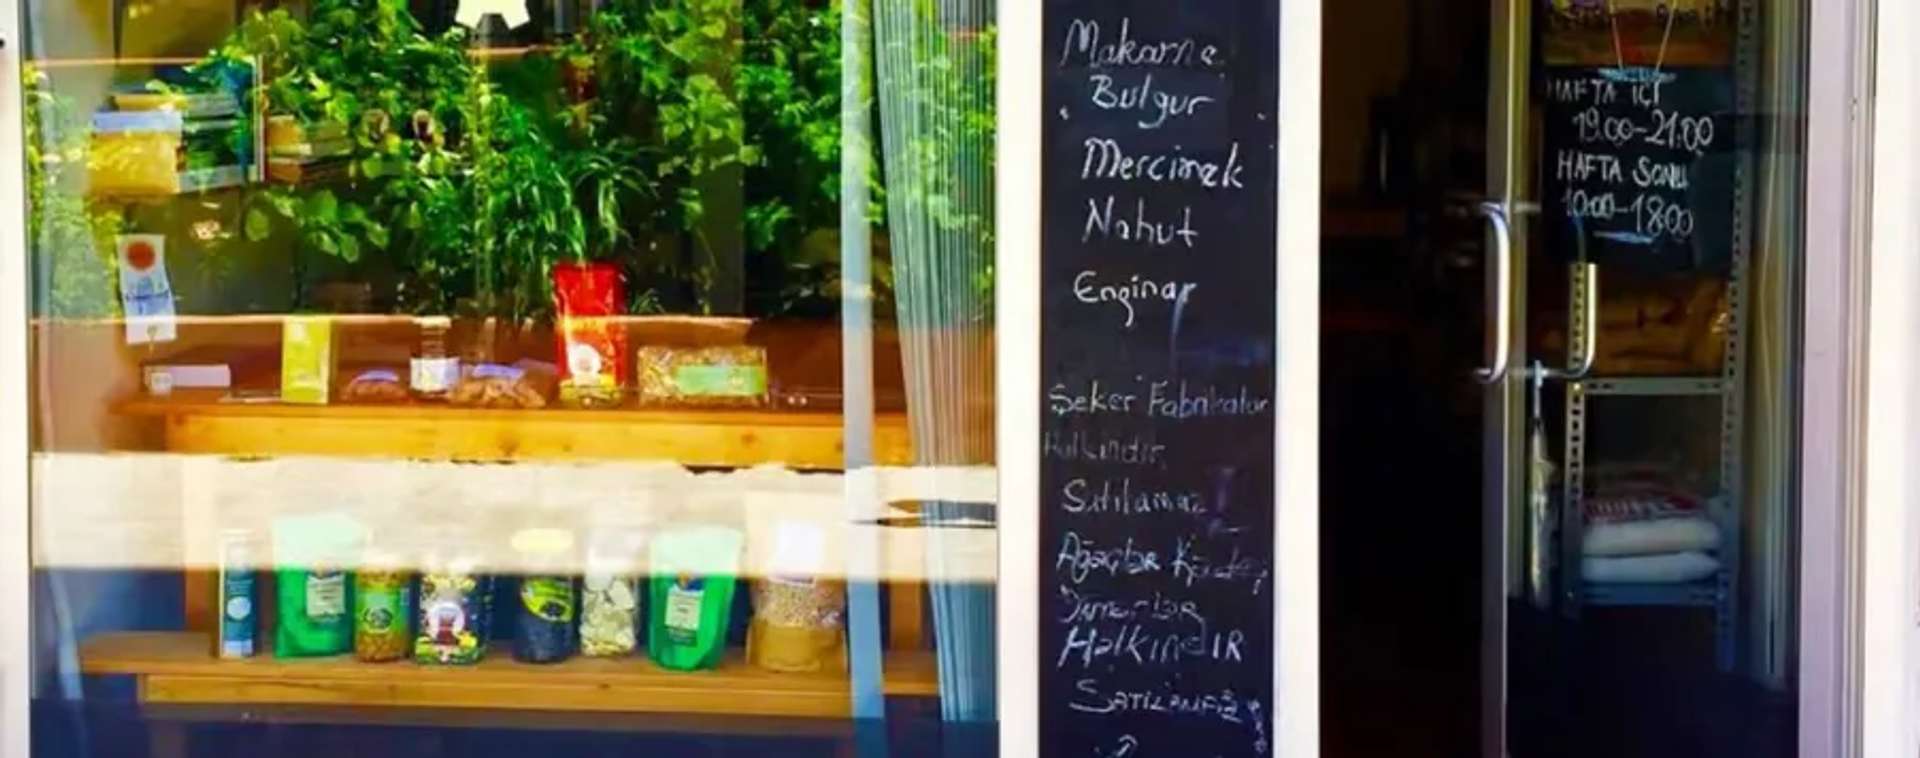 Makarna
Bulgur
Mercimek
Nohut
Enginar
Şeker Fabrikaları
Halkındır
Satılamaz
Ağaçlar
Halkındır
SATILAMAZ
HAFTA İÇİ
19.00-21.00
HAFTA SONU
10.00-18.00